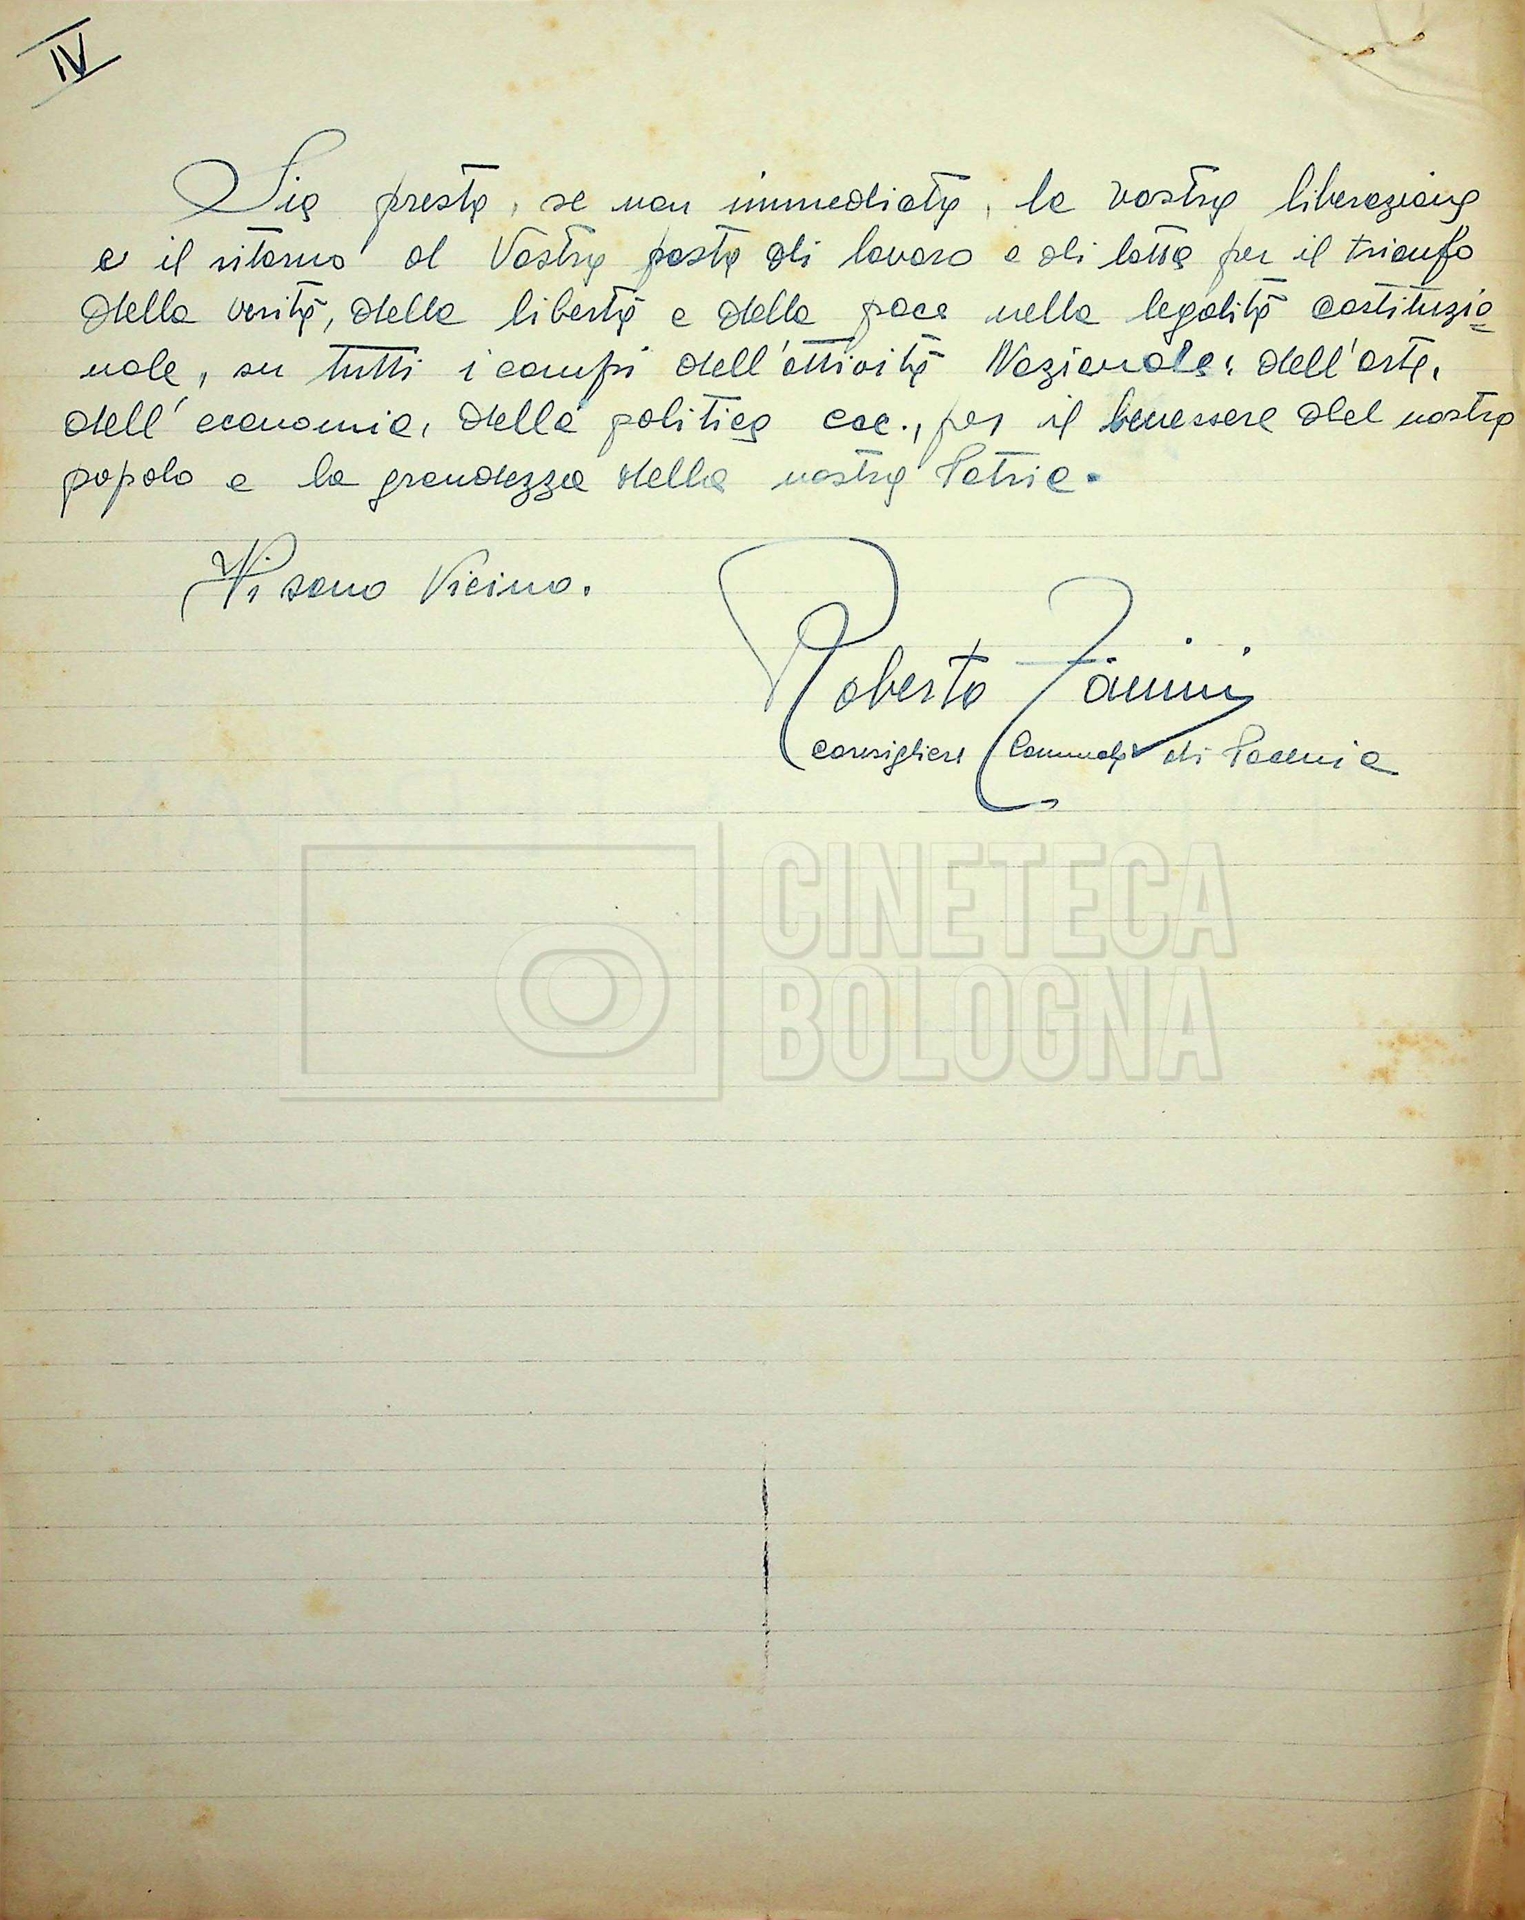 IV
Sia presta, se non immediata, la vostra liberazione
e il ritorno al Vostro posto di lavoro e di lotta per il trionfo
della verità, della libertà e della pace nella legalità costituzio=
nale, su tutti i campi dell'attività Nazionale: dell'arte,
dell'economia, della politica ecc., per il benessere del nostro
popolo e la grandezza della nostra Patria.
Vi sono Vicino.
Roberto Zanini
Consigliere Comunale di
CINETECA
BOLOGNA